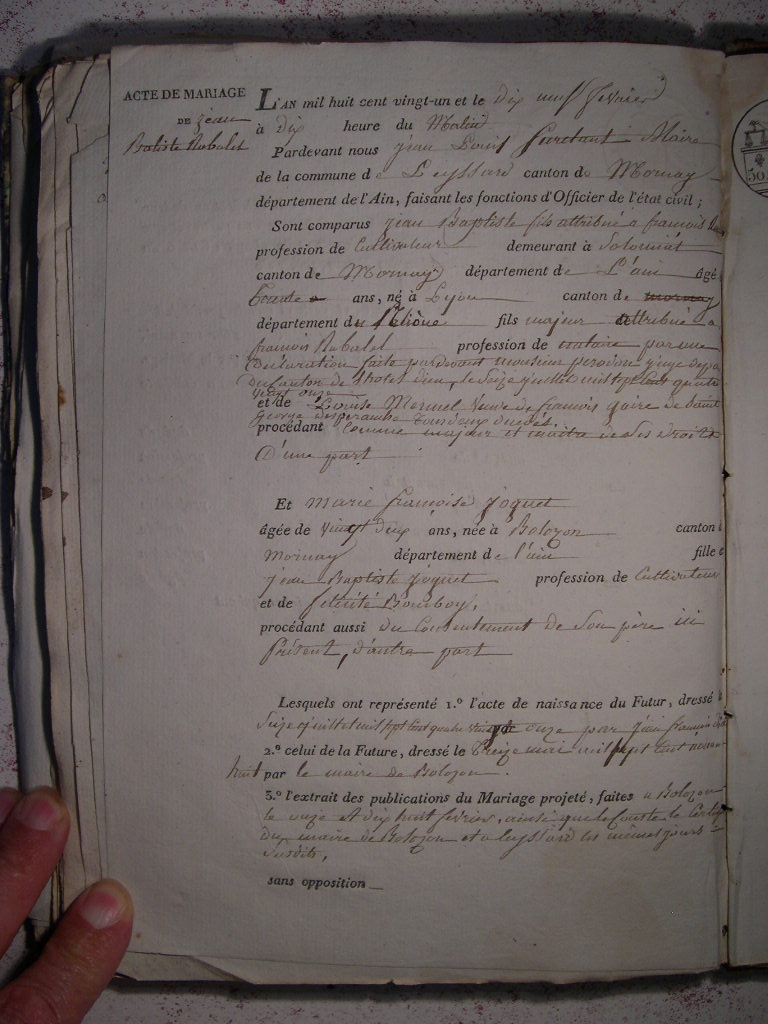 ACTE DE MARIAGE
DE jean
Batiste Rabalet
L'AN mil huit cent vingt-un et le dix neuf fevrier
à dix heure du Matin
Pardevant nous jean Louis Maire
de la commune de Leyssard canton de Mornay
département de l'Ain, faisant les fonctions d'Officier de l'état civil;
Sont comparus jean Baptiste fils attribué à francois
profession de Cultivateur demeurant à Solomiat
canton de Mornay département de L'ain âgé
Trente ans, né à Lyon canton de mornay
département du Rhône fils majeur attribué a
francois Rabalet profession de notaire par une
Déclaration faite pardevant monsieur juge de
du canton de hotel dieu, le Seize juillet mil sept cent quatre
vingt onze
et de Louise Mermel Veuve de francois de Saint
George tous deux
procédant comme majeur et maitre de ses Droits
D'une part
Et Marie francoise joguet
âgée de vingt deux ans, née à Bolozon canton
Mornay département de l'ain fille
jean Baptiste joguet profession de Cultivateur
et de felicité Bomboy,
procédant aussi du Consentement de Son père ici
Présent, d'autre part
Lesquels ont représenté 1.º l'acte de naissance du Futur, dressé
Seize juillet mil sept cent quatre vingt onze par jean francois
2.º celui de la Future, dressé le Treize mai mil sept cent
huit par le maire de Bolozon.
3.º l'extrait des publications du Mariage projeté, faites a Bolozon
le onze et dix huit fevrier, ainsi que le Conste le
du maire de Bolozon et a leyssard les mêmes jours
Susdits,
sans opposition
50